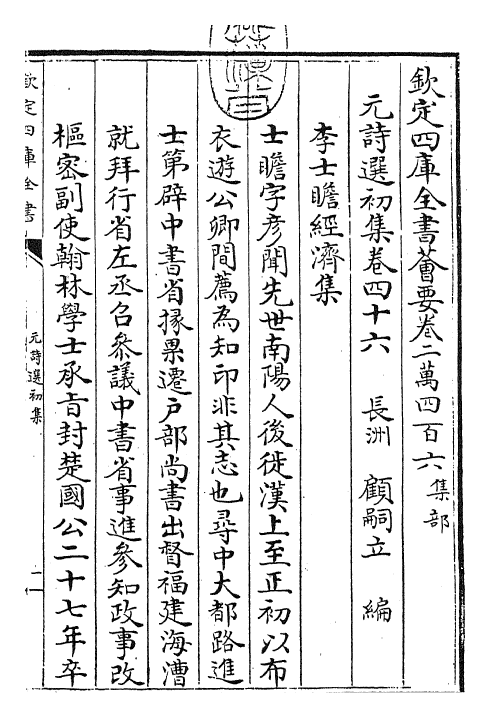 欽定四庫全書薈要卷二萬四百六 集部
元詩選初集卷四十六 長洲 顧嗣立 編
李士瞻經濟集
士瞻字彦聞先世南陽人後徙漢上至正初以布
衣遊公卿間薦為知印非其志也尋中大都路進
士第辟中書省掾累遷户部尚書出督福建海漕
就拜行省左丞召叅議中書省事進參知政事改
樞密副使翰林學士承㫖封楚國公二十七年卒
欽定四庫全書
元詩選初集